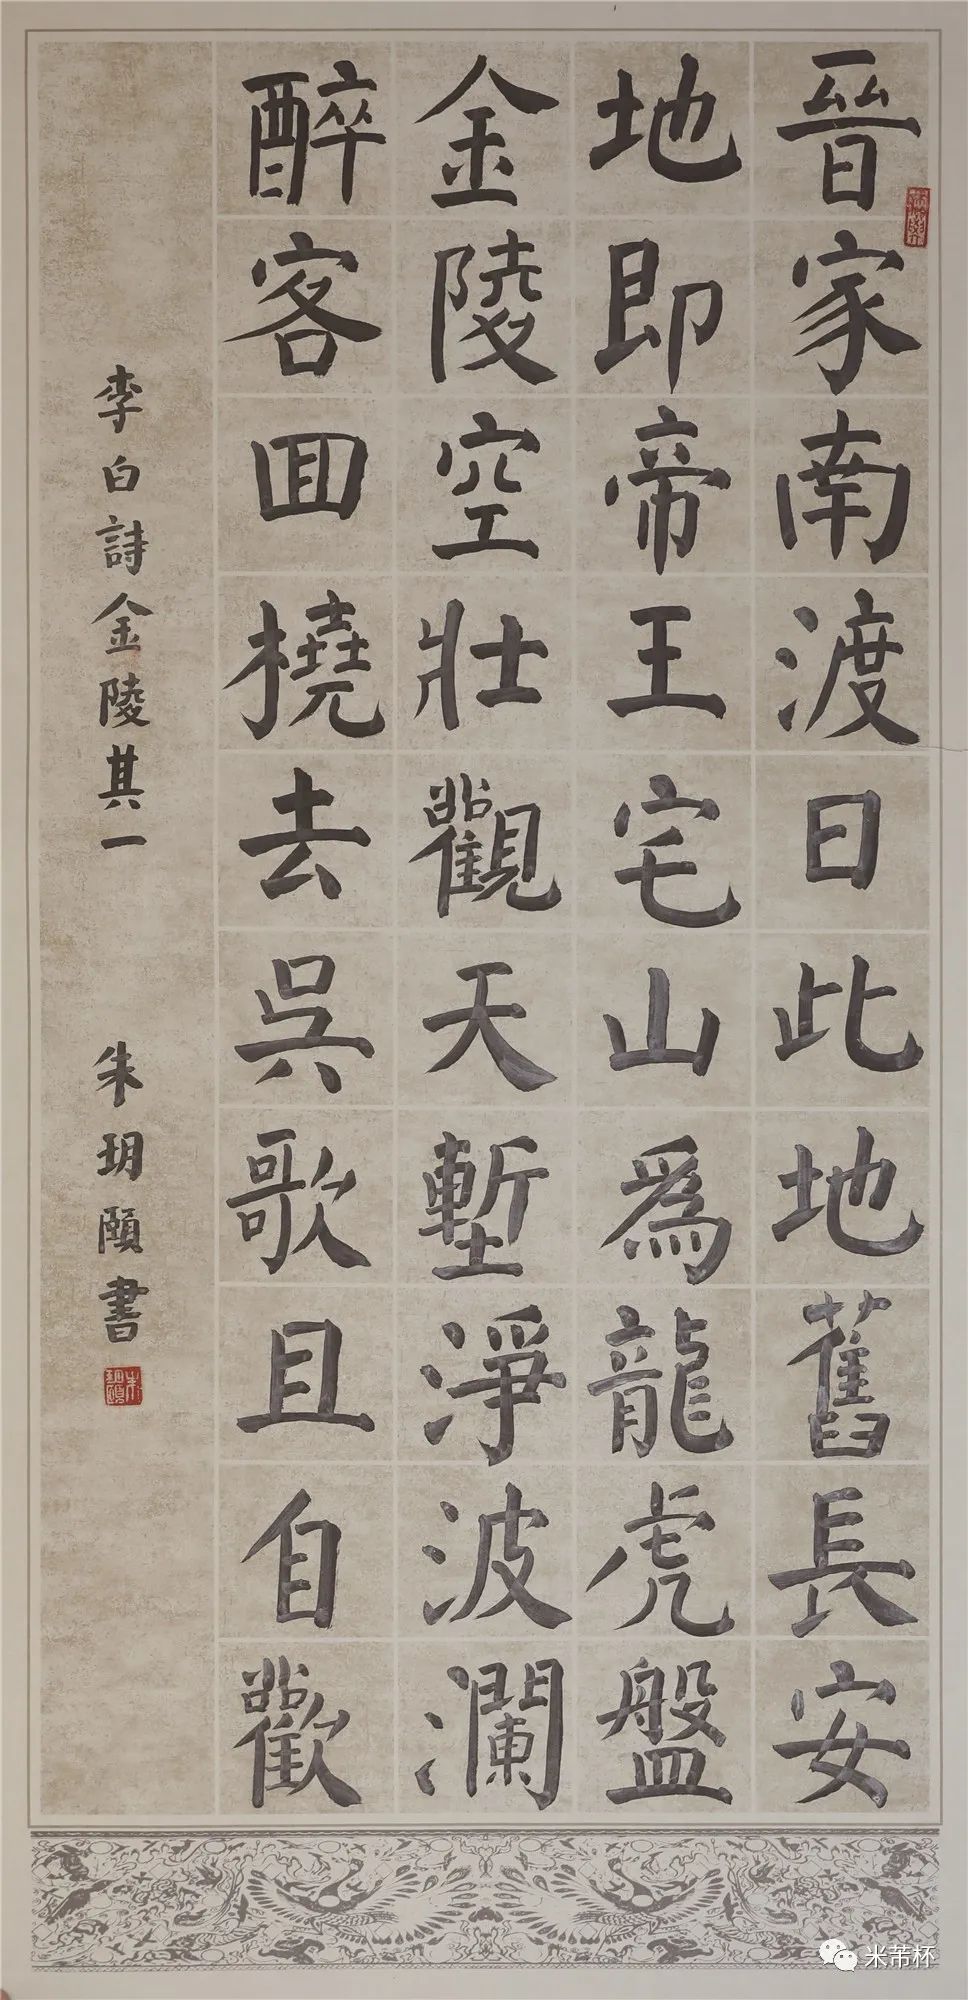 晉家南渡日此地舊長安
地即帝王宅山爲龍虎盤
金陵空壯觀天塹淨波瀾
醉客回橈去吳歌且自歡
李白詩金陵其一 朱玥頤書
朱玥頤
米芾杯